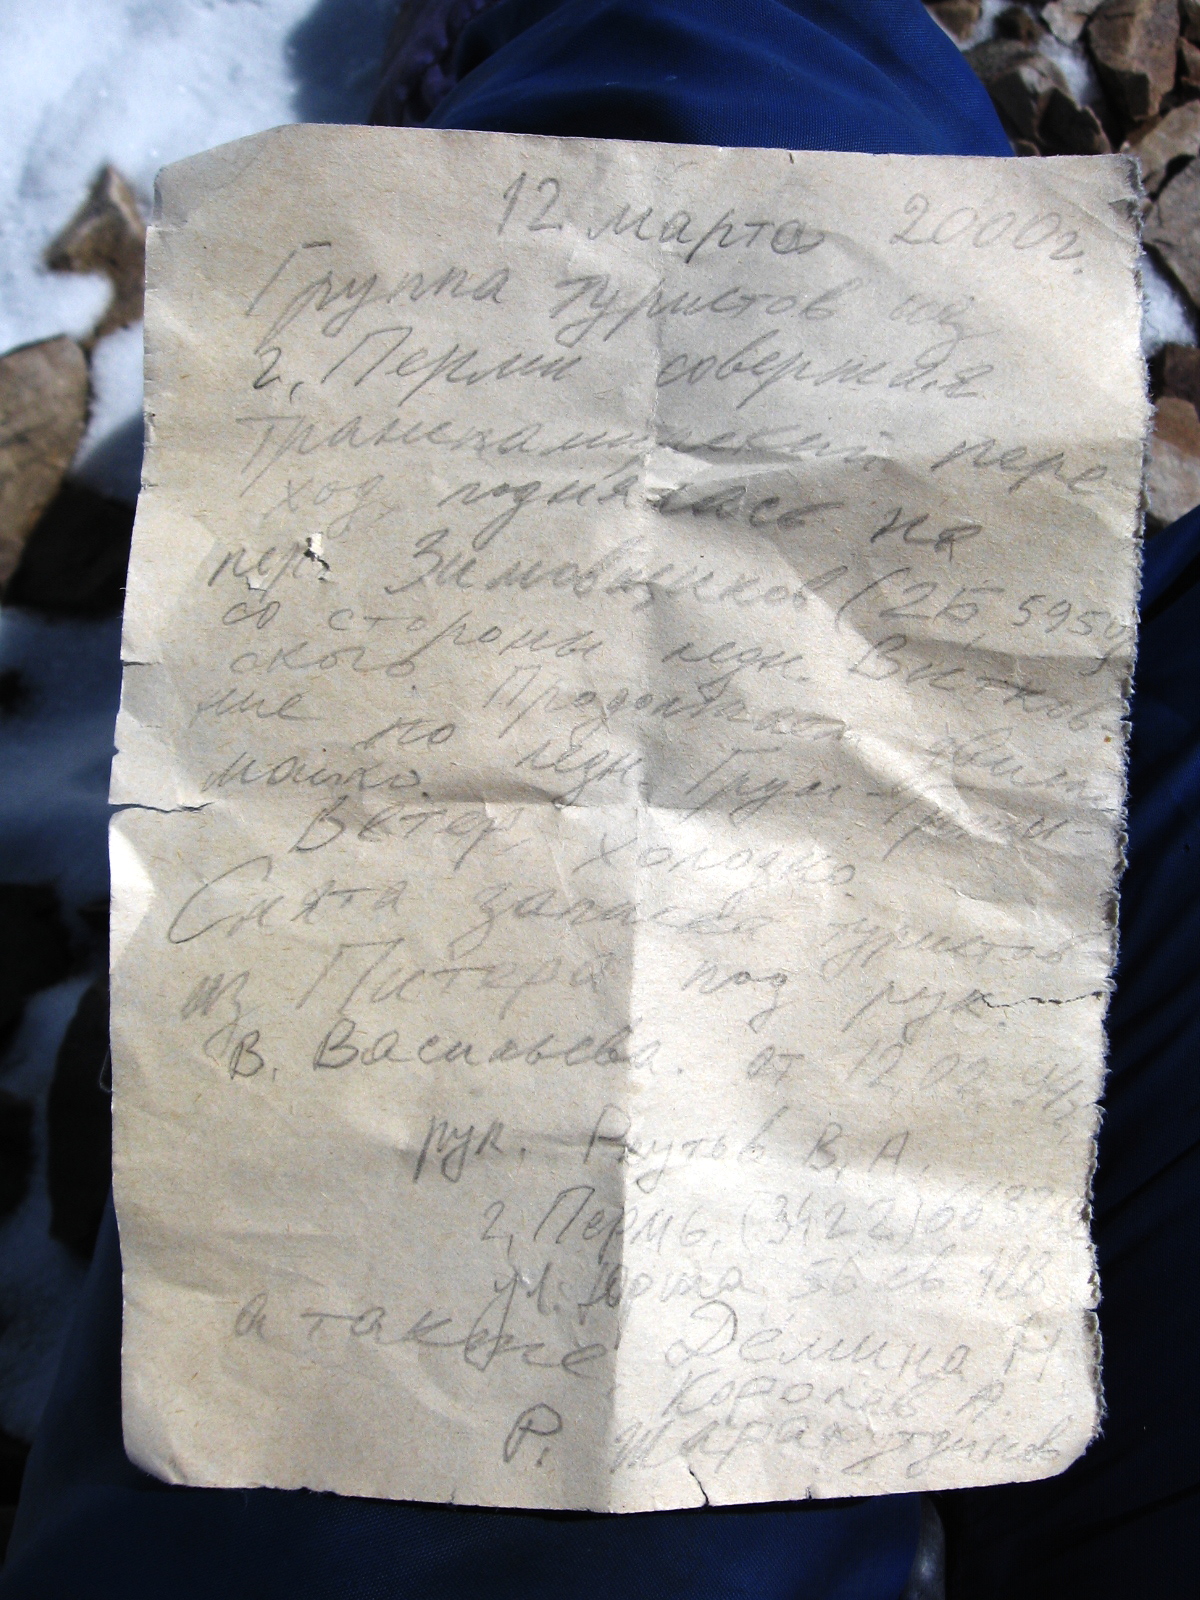 12 марта 2000г.
Группа туристов из
г. Перми совершая
Транспамирский пере-
ход, поднялась на
пер. Зимовщиков (2Б 5950)
со стороны ледн. Витков
ского. Продолжаем движе
ние по ледн. Грум-Гржи-
майло.
Ветер, холодно.
Снята записка туристов
из Питера под рук.
В. Васильева. от 12.02.94г.
рук. В. А.
г. Пермь, (3422)
ул. 128
а также Демина Н
Королев А.
Р. Шарафутдинов